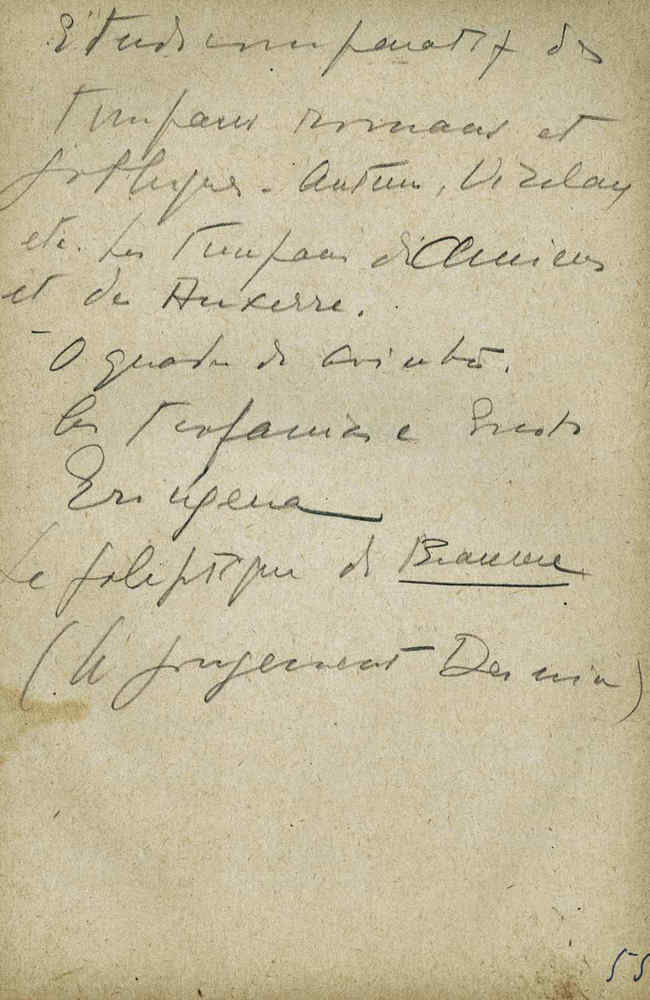 Etude comparatif des
tympans romans et
gothiques - Autun, Vézelay
etc. les tympans d'Amiens
et de Auxerre.
- O quadro de Coimbra.
les e Scoto
Erigena
Le poliptique de Beaune
(le jugement Dernier)
55